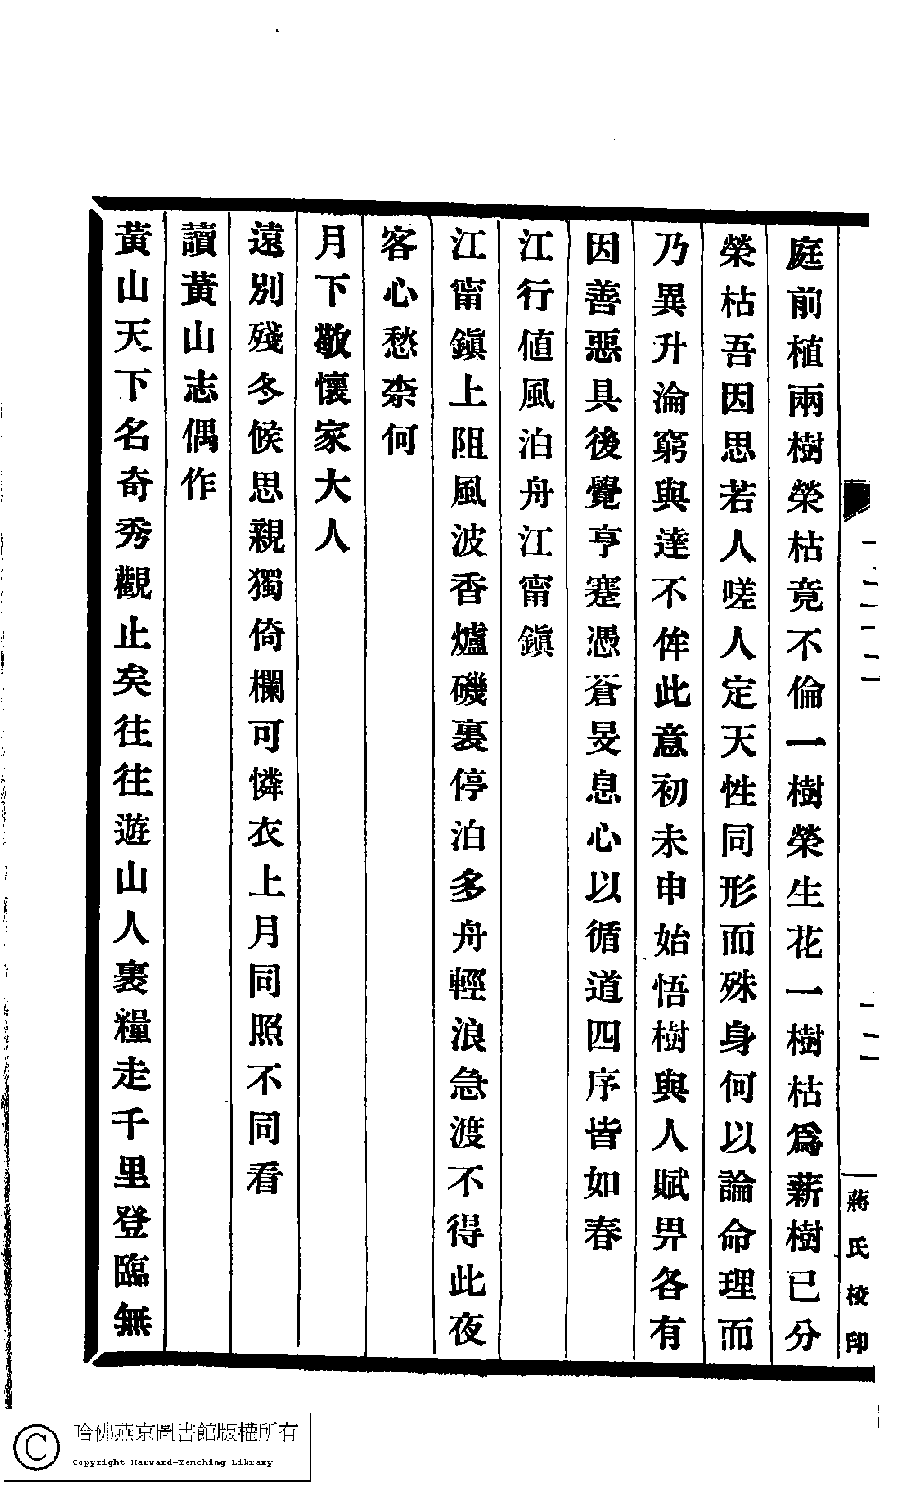 庭前植兩樹榮枯竟不倫一樹榮生花一樹枯爲薪樹已分
榮枯吾因思若人嗟人定天性同形而殊身何以論命理而
乃異升淪窮與達不侔此意初未申始悟樹與人賦畀各有
因善惡具後覺亨蹇憑蒼旻息心以循道四序皆如春
江行值風泊舟江甯鎭
江甯鎭上阻風波香爐磯裏停泊多舟輕浪急渡不得此夜
客心愁柰何
月下敬懷家大人
遠別殘冬候思親獨倚欄可憐衣上月同照不同看
讀黃山志偶作
黃山天下名奇秀觀止矣往往遊山人裹糧走千里登臨無
蔣氏校印
哈佛燕京圖書館版權所有
Copyright Harvard-Yenching Library